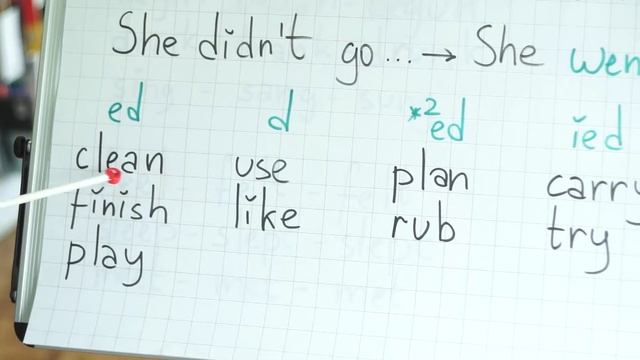 She didn't go... → She wen
ed d *2 ed ied
clean use plan carry
finish like rub try
play